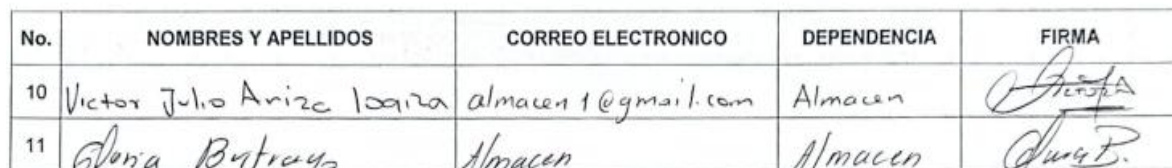 No. NOMBRES Y APELLIDOS CORREO ELECTRONICO DEPENDENCIA FIRMA
10 Victor Julio Ariza almacen1@gmail.com Almacen
11 Gloria Almacen Almacen